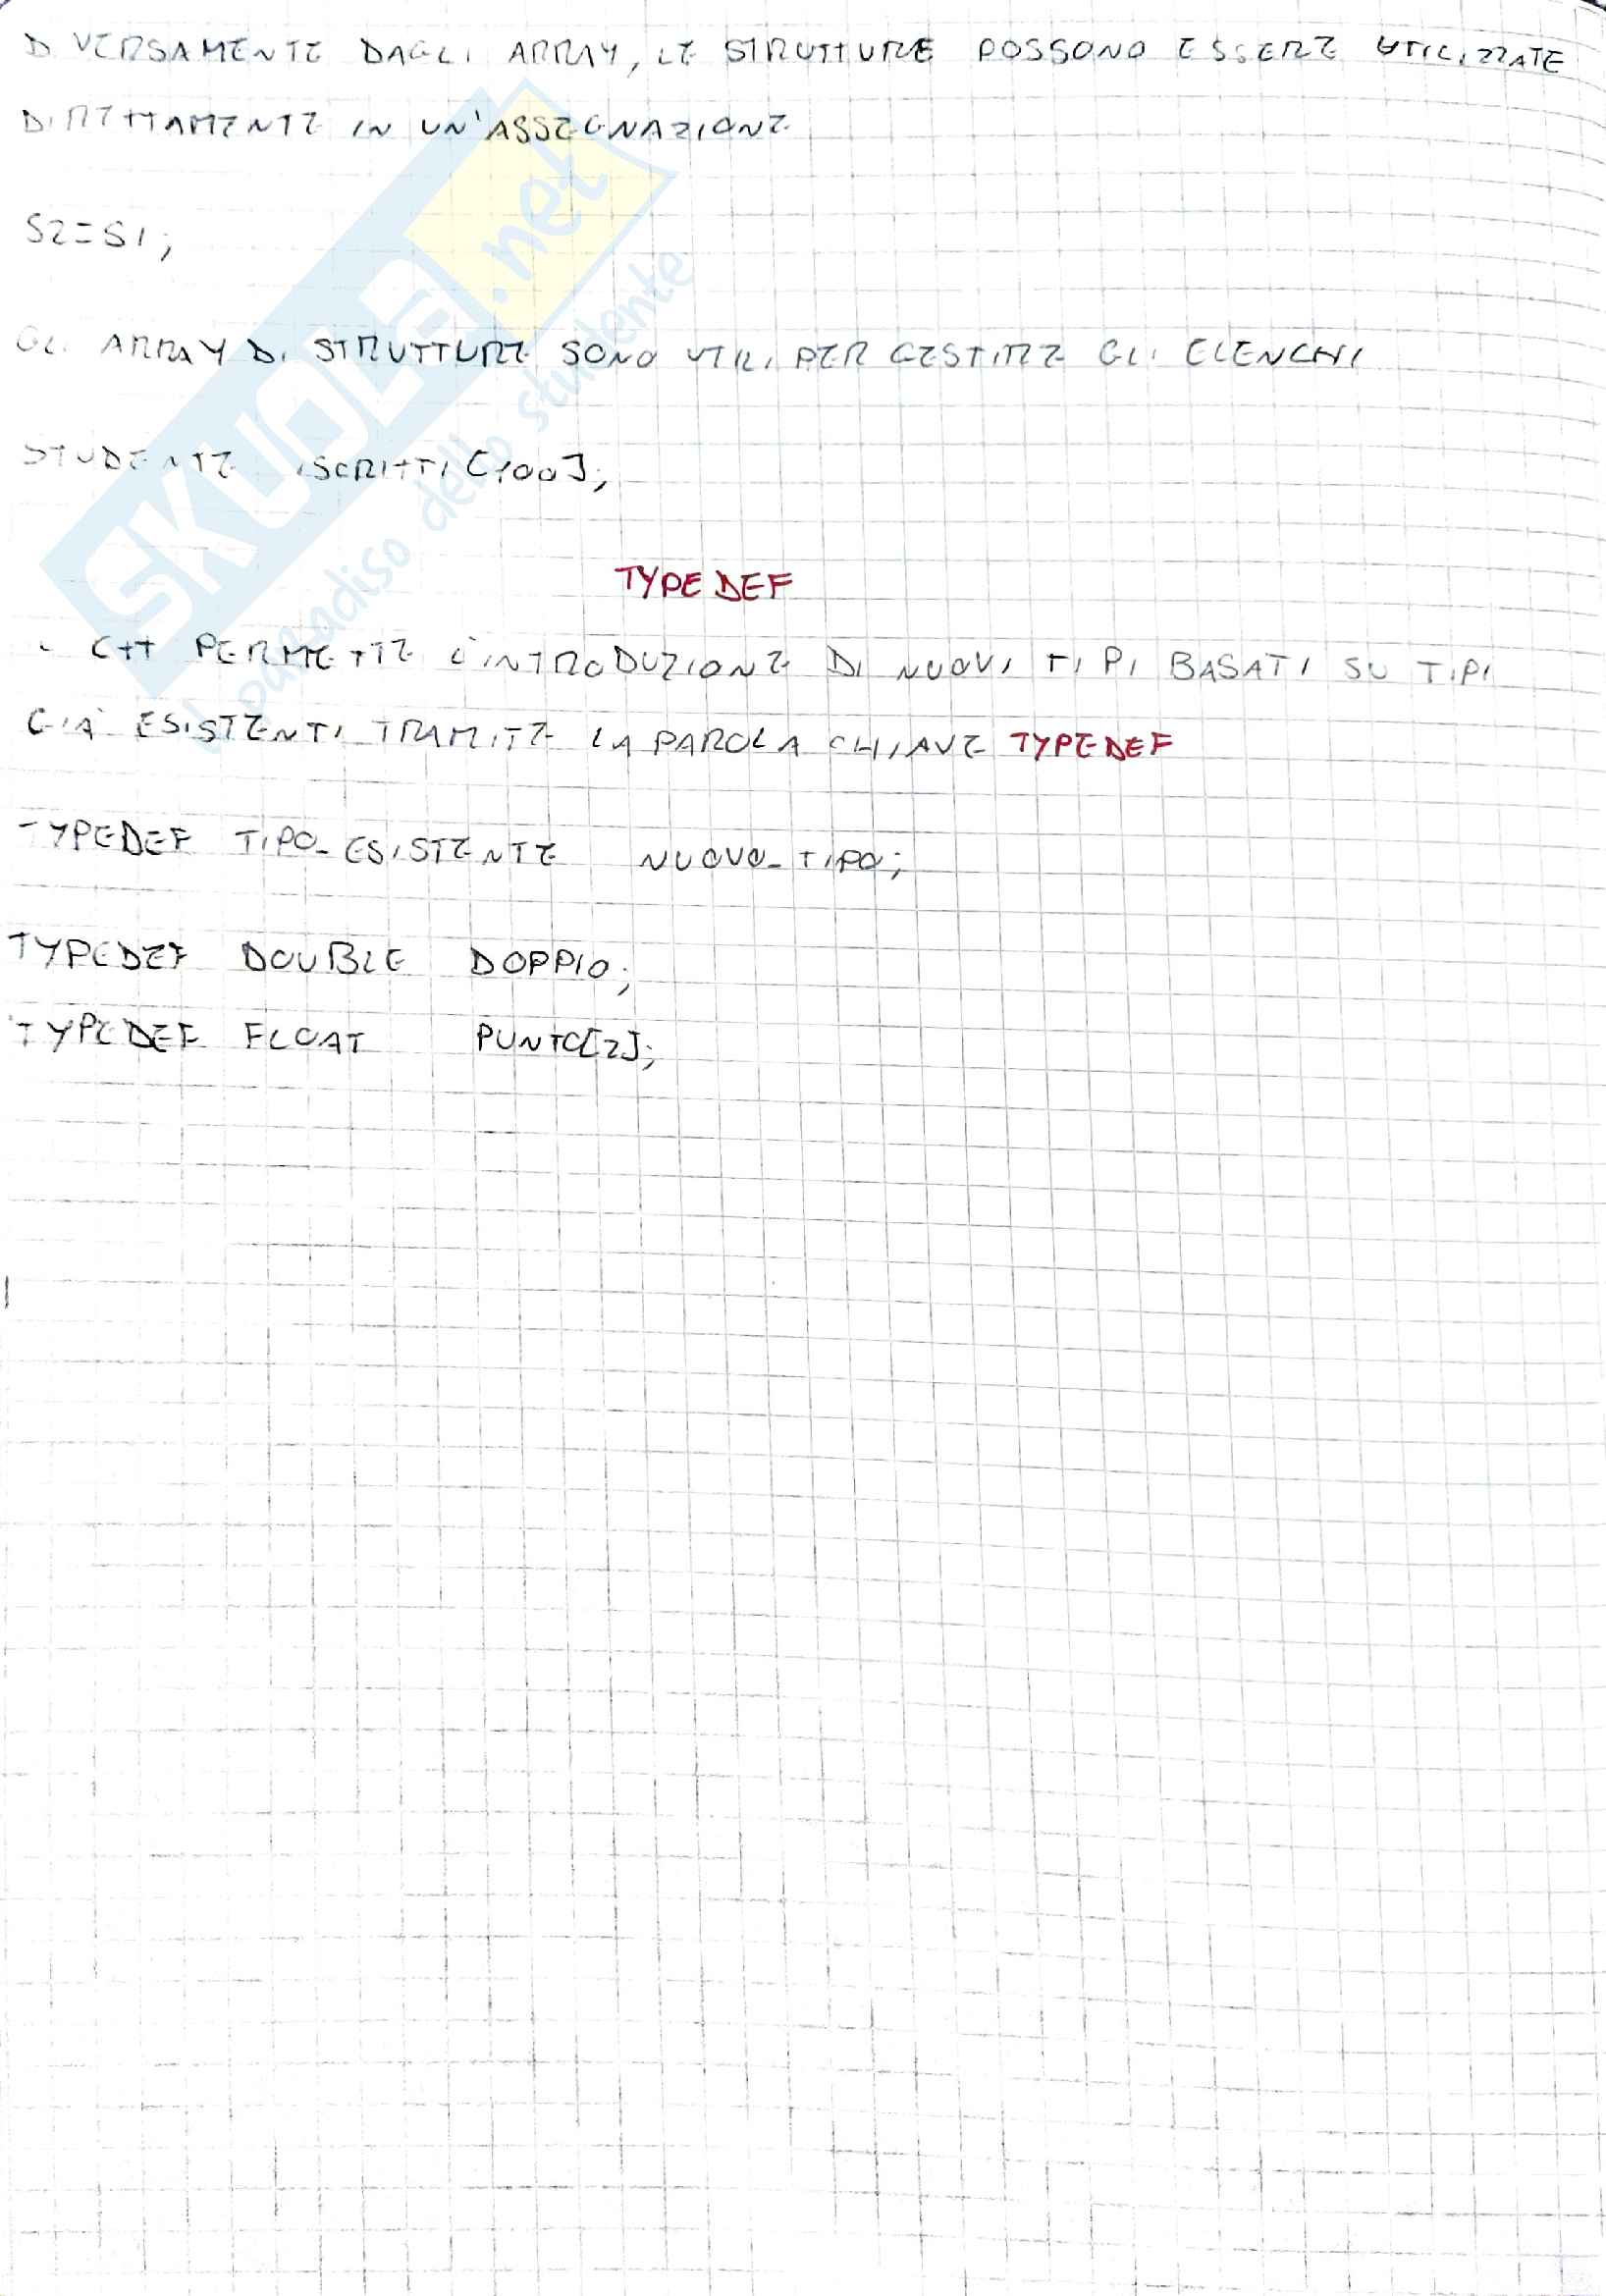 DIVERSAMENTE DAGLI ARRAY, LE STRUTTURE POSSONO ESSERE UTILIZZATE
DIRETTAMENTE IN UN'ASSEGNAZIONE
S2=S1;
GLI ARRAY DI STRUTTURE SONO UTILI PER GESTIRE GLI ELENCHI
STUDENTE ISCRITTI[100];
TYPEDEF
IL C++ PERMETTE L'INTRODUZIONE DI NUOVI TIPI BASATI SU TIPI
GIÀ ESISTENTI TRAMITE LA PAROLA CHIAVE TYPEDEF
TYPEDEF TIPO_ESISTENTE NUOVO_TIPO;
TYPEDEF DOUBLE DOPPIO;
TYPEDEF FLOAT PUNTO[2];
SKUOLA.net
il paradiso dello studente